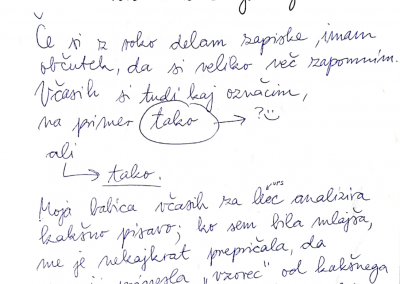 Če si z roko delam zapiske, imam
občutek, da si veliko več zapomnim.
Včasih si tudi kaj označim,
na primer tako → ?☺
ali
↳ tako.
Moja babica včasih za kvec analizira
kakšno pisavo; ko sem bila mlajša,
me je nekajkrat prepričala, da
"vzorec" od kakšnega